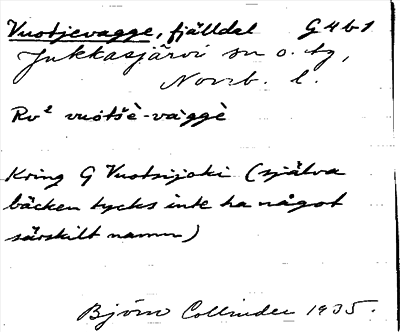 Vuotjevagge, fjälldal G4b1
Jukkasjärvi sn o. tg,
Norrb. l.
Rv² vuotšè-vàggè
Kring G Vuotsijoki (själva
bäcken tycks inte ha något
särskilt namn)
Björn Collinder 1935.